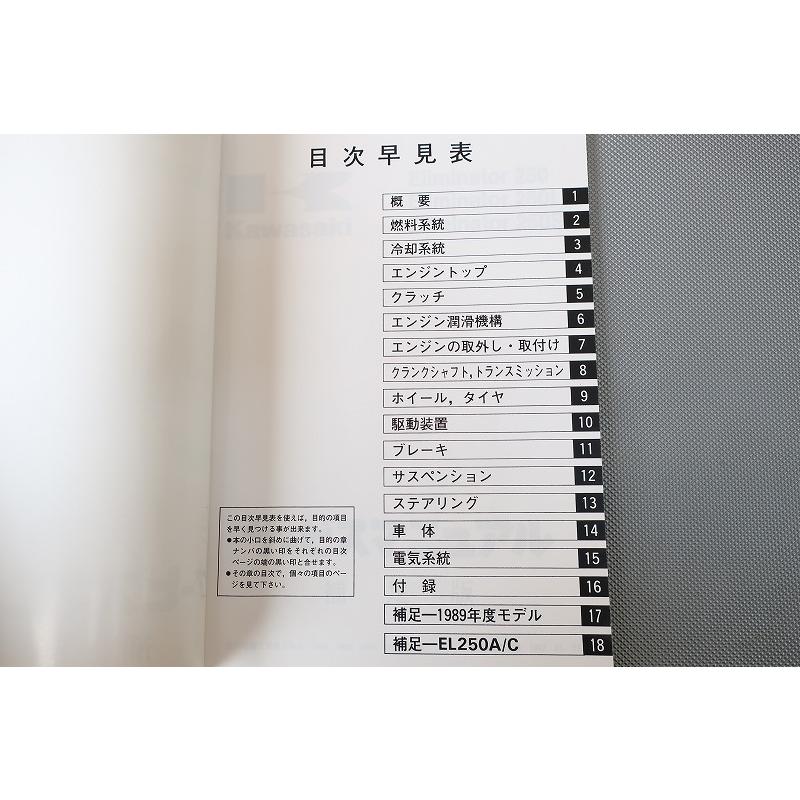 目次早見表
概要 1
燃料系統 2
冷却系統 3
エンジントップ 4
クラッチ 5
エンジン潤滑機構 6
エンジンの取外し・取付け 7
クランクシャフト,トランスミッション 8
ホイール,タイヤ 9
駆動装置 10
ブレーキ 11
サスペンション 12
ステアリング 13
車体 14
電気系統 15
付録 16
補足―1989年度モデル 17
補足―EL250A/C 18
この目次早見表を使えば,目的の項目
を早く見つける事が出来ます。
●本の小口を斜めに曲げて,目的の章
ナンバの黒い印をそれぞれの目次
ページの端の黒い印と合せます。
●その章の目次で,個々の項目のペー
ジを見て下さい。
Kawasaki
Eliminator 250